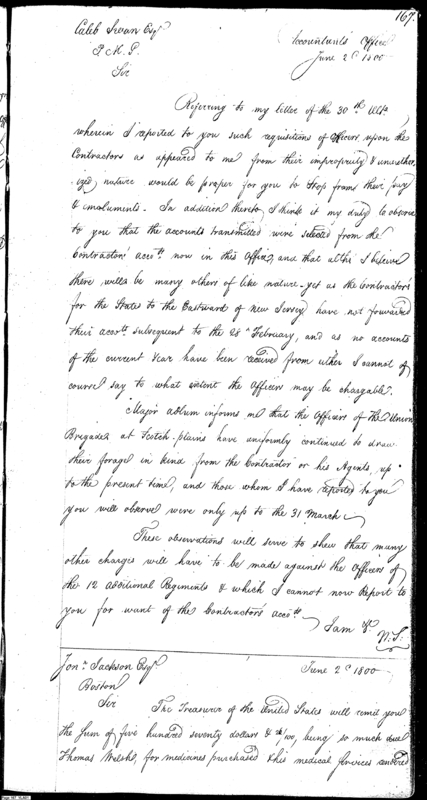 167.
Caleb Swan Esqr.
P. M. G.
Sir
Accountants Office
June 2d 1800
Referring to my letter of the 30th Ulto.
wherein I reported to you such requisitions of Officers upon the
Contractors as appeared to me from their impropriety & unauthor
ized nature would be proper for you to stop from their pay
& emoluments. In addition thereto I think it my duty to observe
to you that the accounts transmitted were selected from the
Contractors accots. now in this Office, and that altho' I believe
there will be many others of like nature yet as the Contractors
for the States to the Eastward of New Jersey have not forwarded
their accots. subsequent to the 28th February, and as no accounts
of the current year have been received from either I cannot of
course say to what extent the Officers may be chargable.
Major Adlum informs me that the Officers of the Union
Brigade at Scotch plains have uniformly continued to draw
their forage in kind from the Contractor or his Agents, up
to the present time, and those whom I have reported to you
you will observe were only up to the 31 March
These observations will serve to shew that many
other charges will have to be made against the Officers of
the 12 additional Regiments & which I cannot now Report to
you for want of the Contractors accots.
I am &.
W. S.
Jona. Jackson Esqr.
Boston
June 2d 1800
Sir
The Treasurer of the United States will remit you
the Sum of five hundred seventy dollars & /100, being so much due
Thomas Welsh, for medicines purchased & his medical services rendered